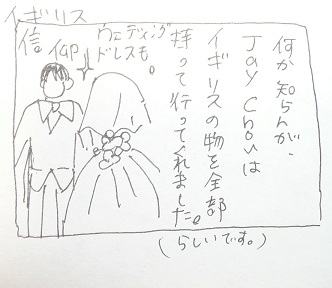 イギリス
何か知らんが、
Jay Chouは
イギリスの物を全部
持って行ってくれました。
ウェディング
ドレスも。
(らしいです。)